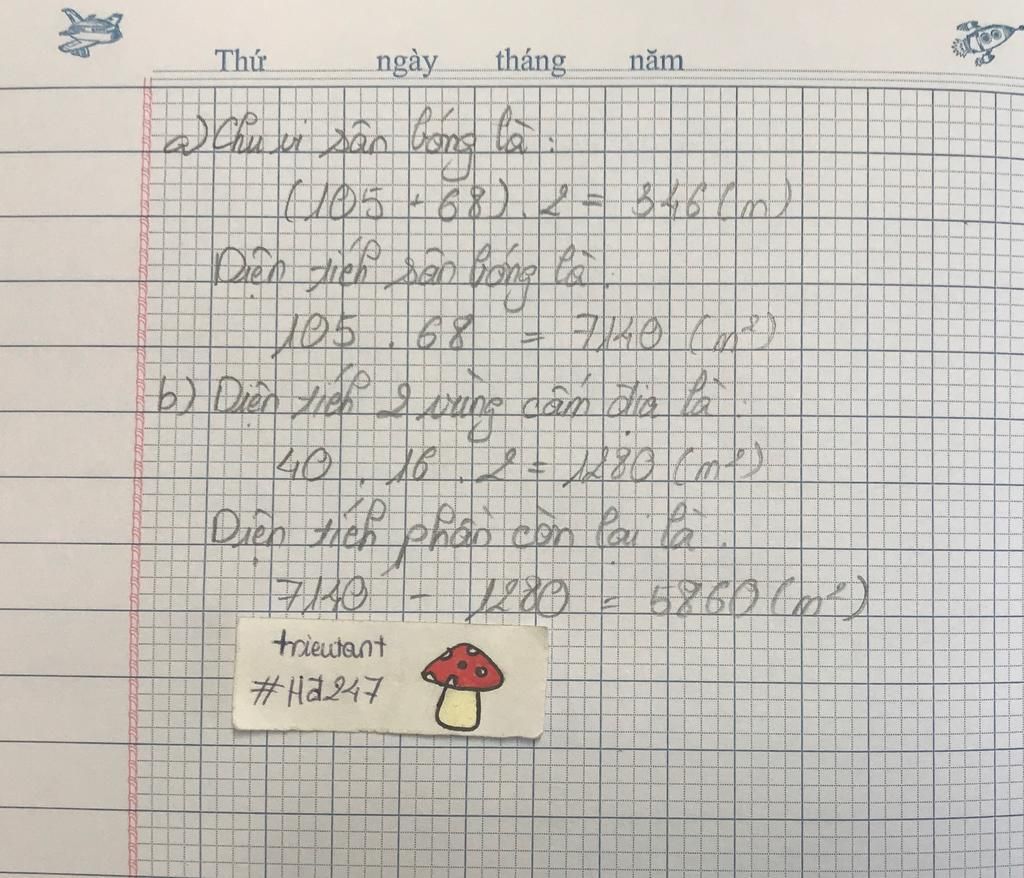 Thứ ngày tháng năm
a) Chu vi sân bóng là:
(105 + 68) . 2 = 346 (m)
Diện tích sân bóng là:
105 . 68 = 7140 (m²)
b) Diện tích 2 vùng cấm địa là:
40 . 16 . 2 = 1280 (m²)
Diện tích phần còn lại là:
7140 - 1280 = 5860 (m²)
trieutant
#Hd247